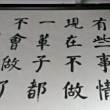 有些事情
現在不做
一輩子都
不會做了